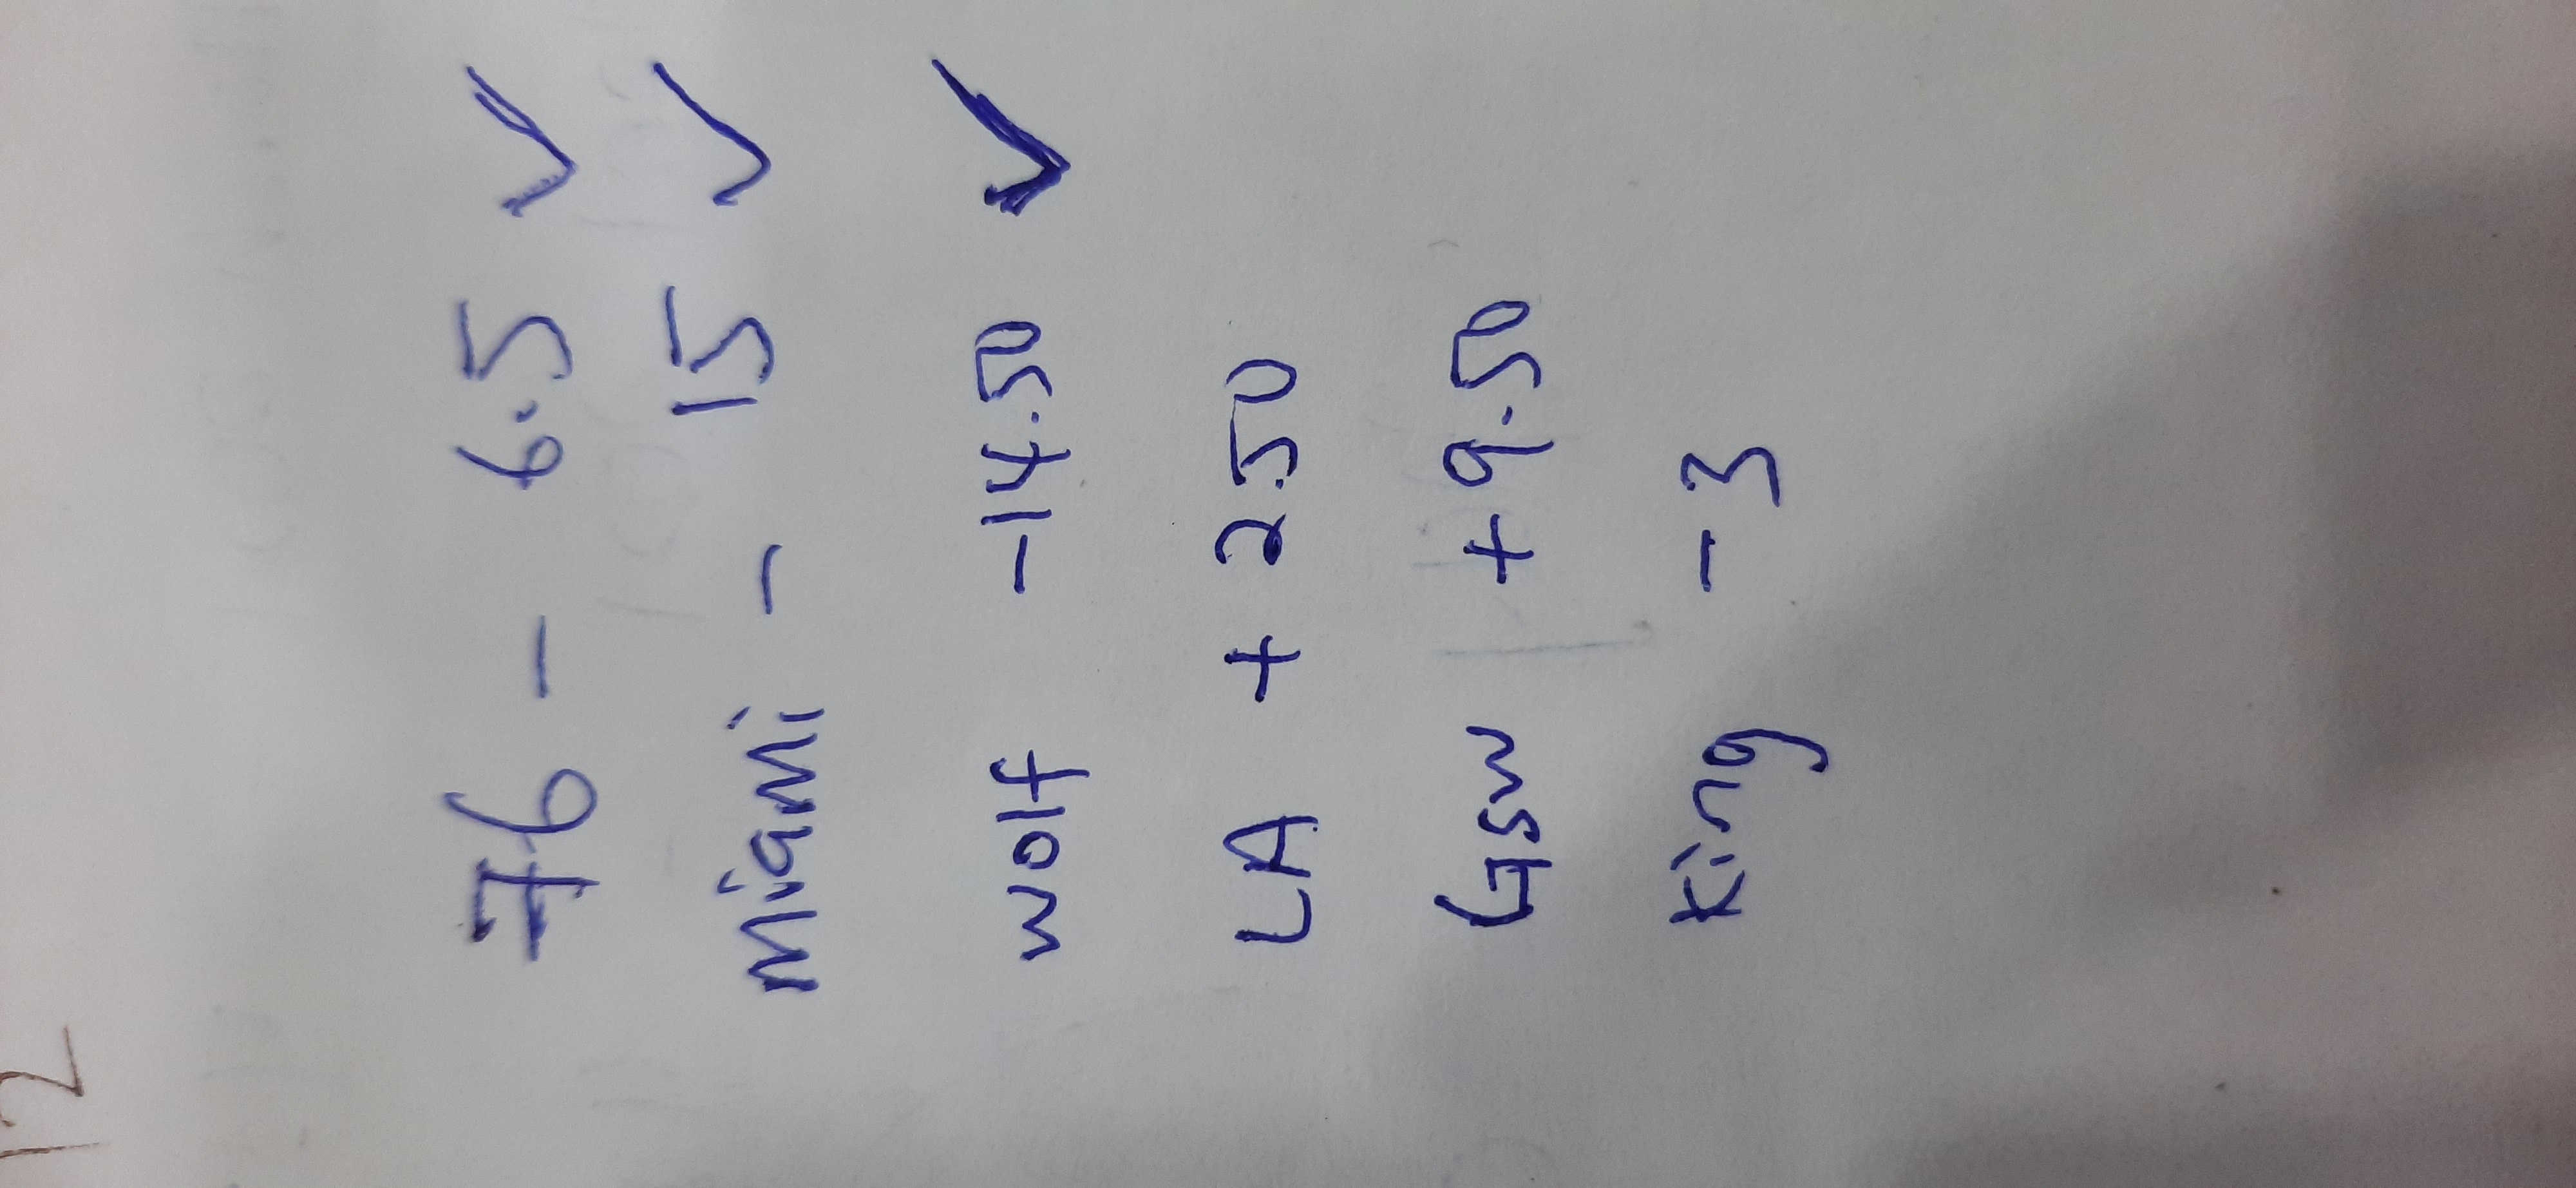 76 - 6.5 ✓
Miami - 15 ✓
wolf -14.50 ✓
LA + 2.50
GSW + 9.50
King - 3